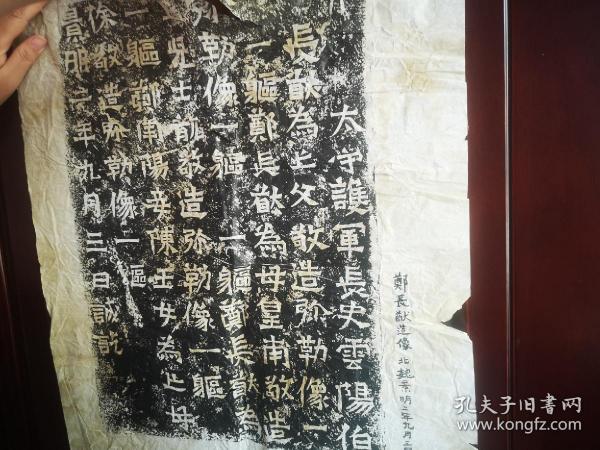 太守護軍長史雲陽伯
長猷為亡父敬造弥勒像一
一軀鄭長猷為母皇甫敬造
弥勒像一軀 一軀鄭長猷為
亡兒士龍敬造弥勒像一軀
一軀鄭南陽妾陳玉女為亡母
徐敬造弥勒像一軀
景明二年九月三日誠訖
鄭長猷造像 北魏景明二年九月三
孔夫子旧书网
www.kongfz.com